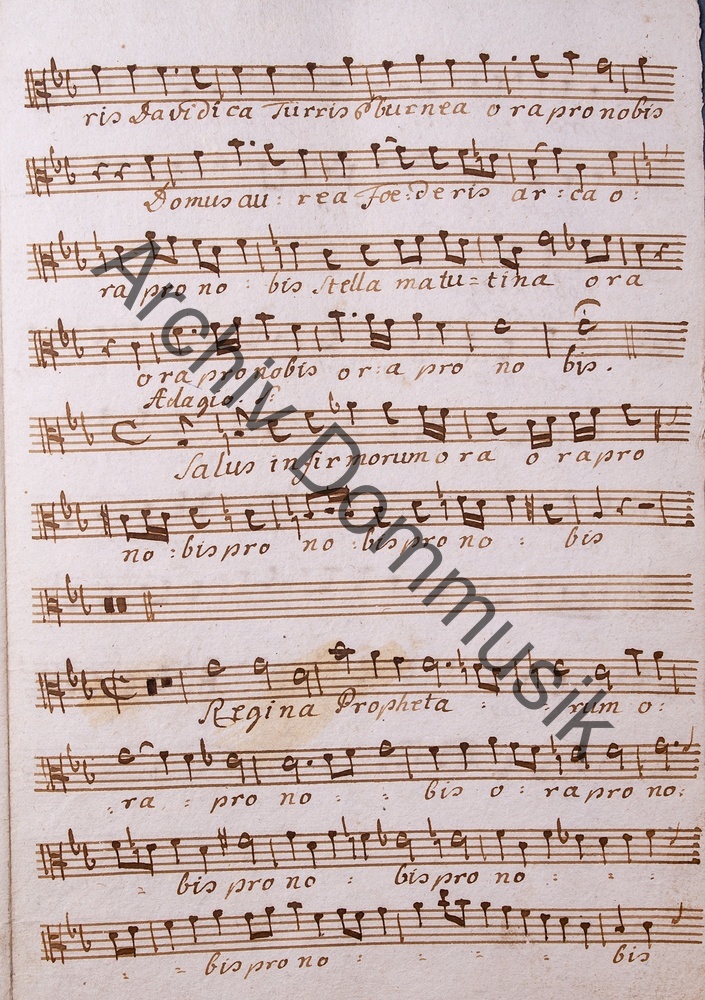 ris Davidica Turris Eburnea ora pro nobis
Domus au: rea Foe: deris ar: ca o:
ra pro no : bis Stella matu= tina ora
ora pro nobis or: a pro no bis.
Adagio.
Salus infirmorum ora o ra pro
no : bis pro no : bis pro no : bis
Regina Propheta : : rum o:
: ra : pro no : : bis o: ra pro no:
: bis pro no : bis pro no : : :
: : bis pro no : : : : bis
Archiv Dommusik